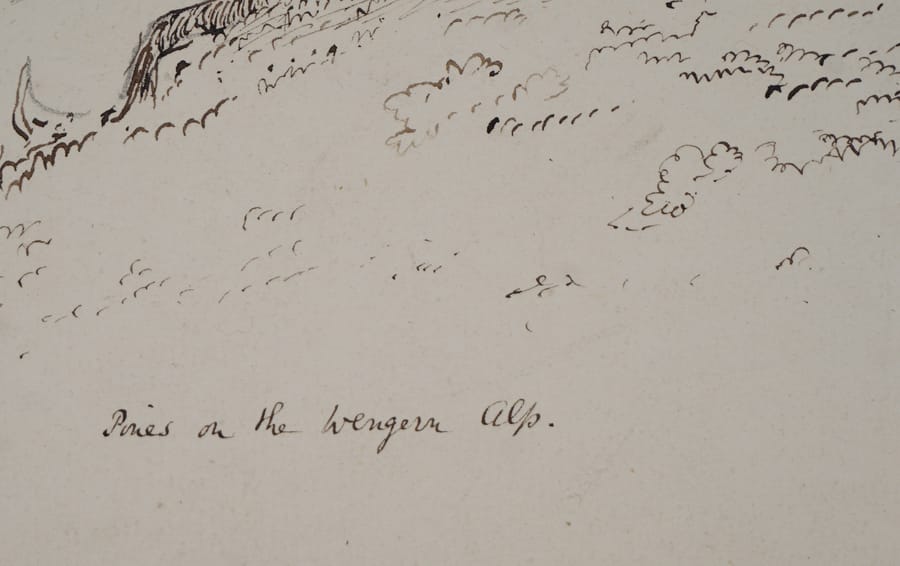 Pines on the Wengern Alp.